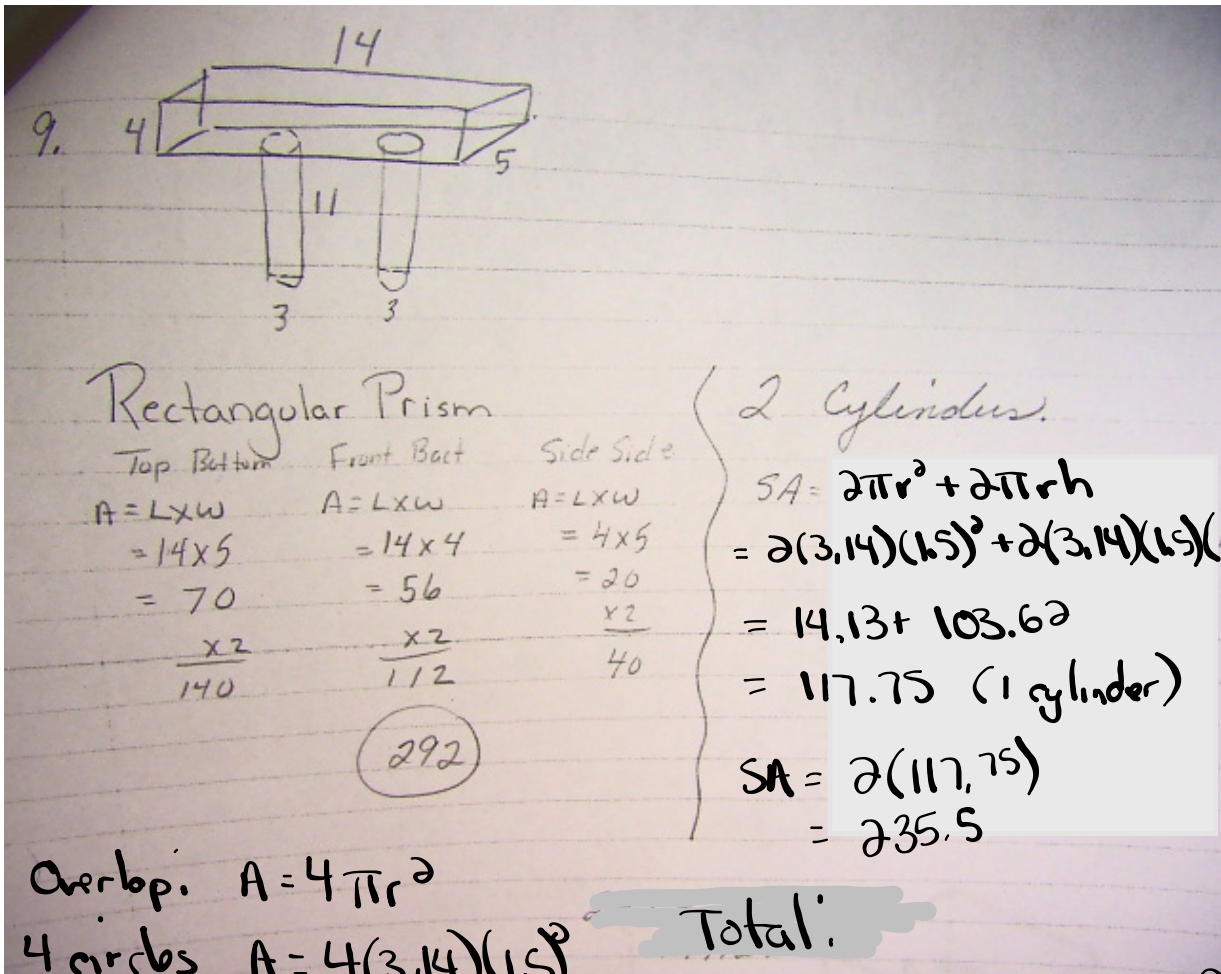 14
9.
4
5
11
3
3
Rectangular Prism
Top Bottom
A = L x w
= 14 x 5
= 70
x 2
140
Front Bact
A = L x w
= 14 x 4
= 56
x 2
112
Side Side
A = L x w
= 4 x 5
= 20
x 2
40
292
2 Cylinders.
SA = 2πr² + 2πrh
= 2(3.14)(1.5)² + 2(3.14)(1.5)(
= 14.13 + 103.62
= 117.75 (1 cylinder)
SA = 2(117.75)
= 235.5
Overlap: A = 4πr²
4 circles A = 4(3.14)(1.5)²
Total: